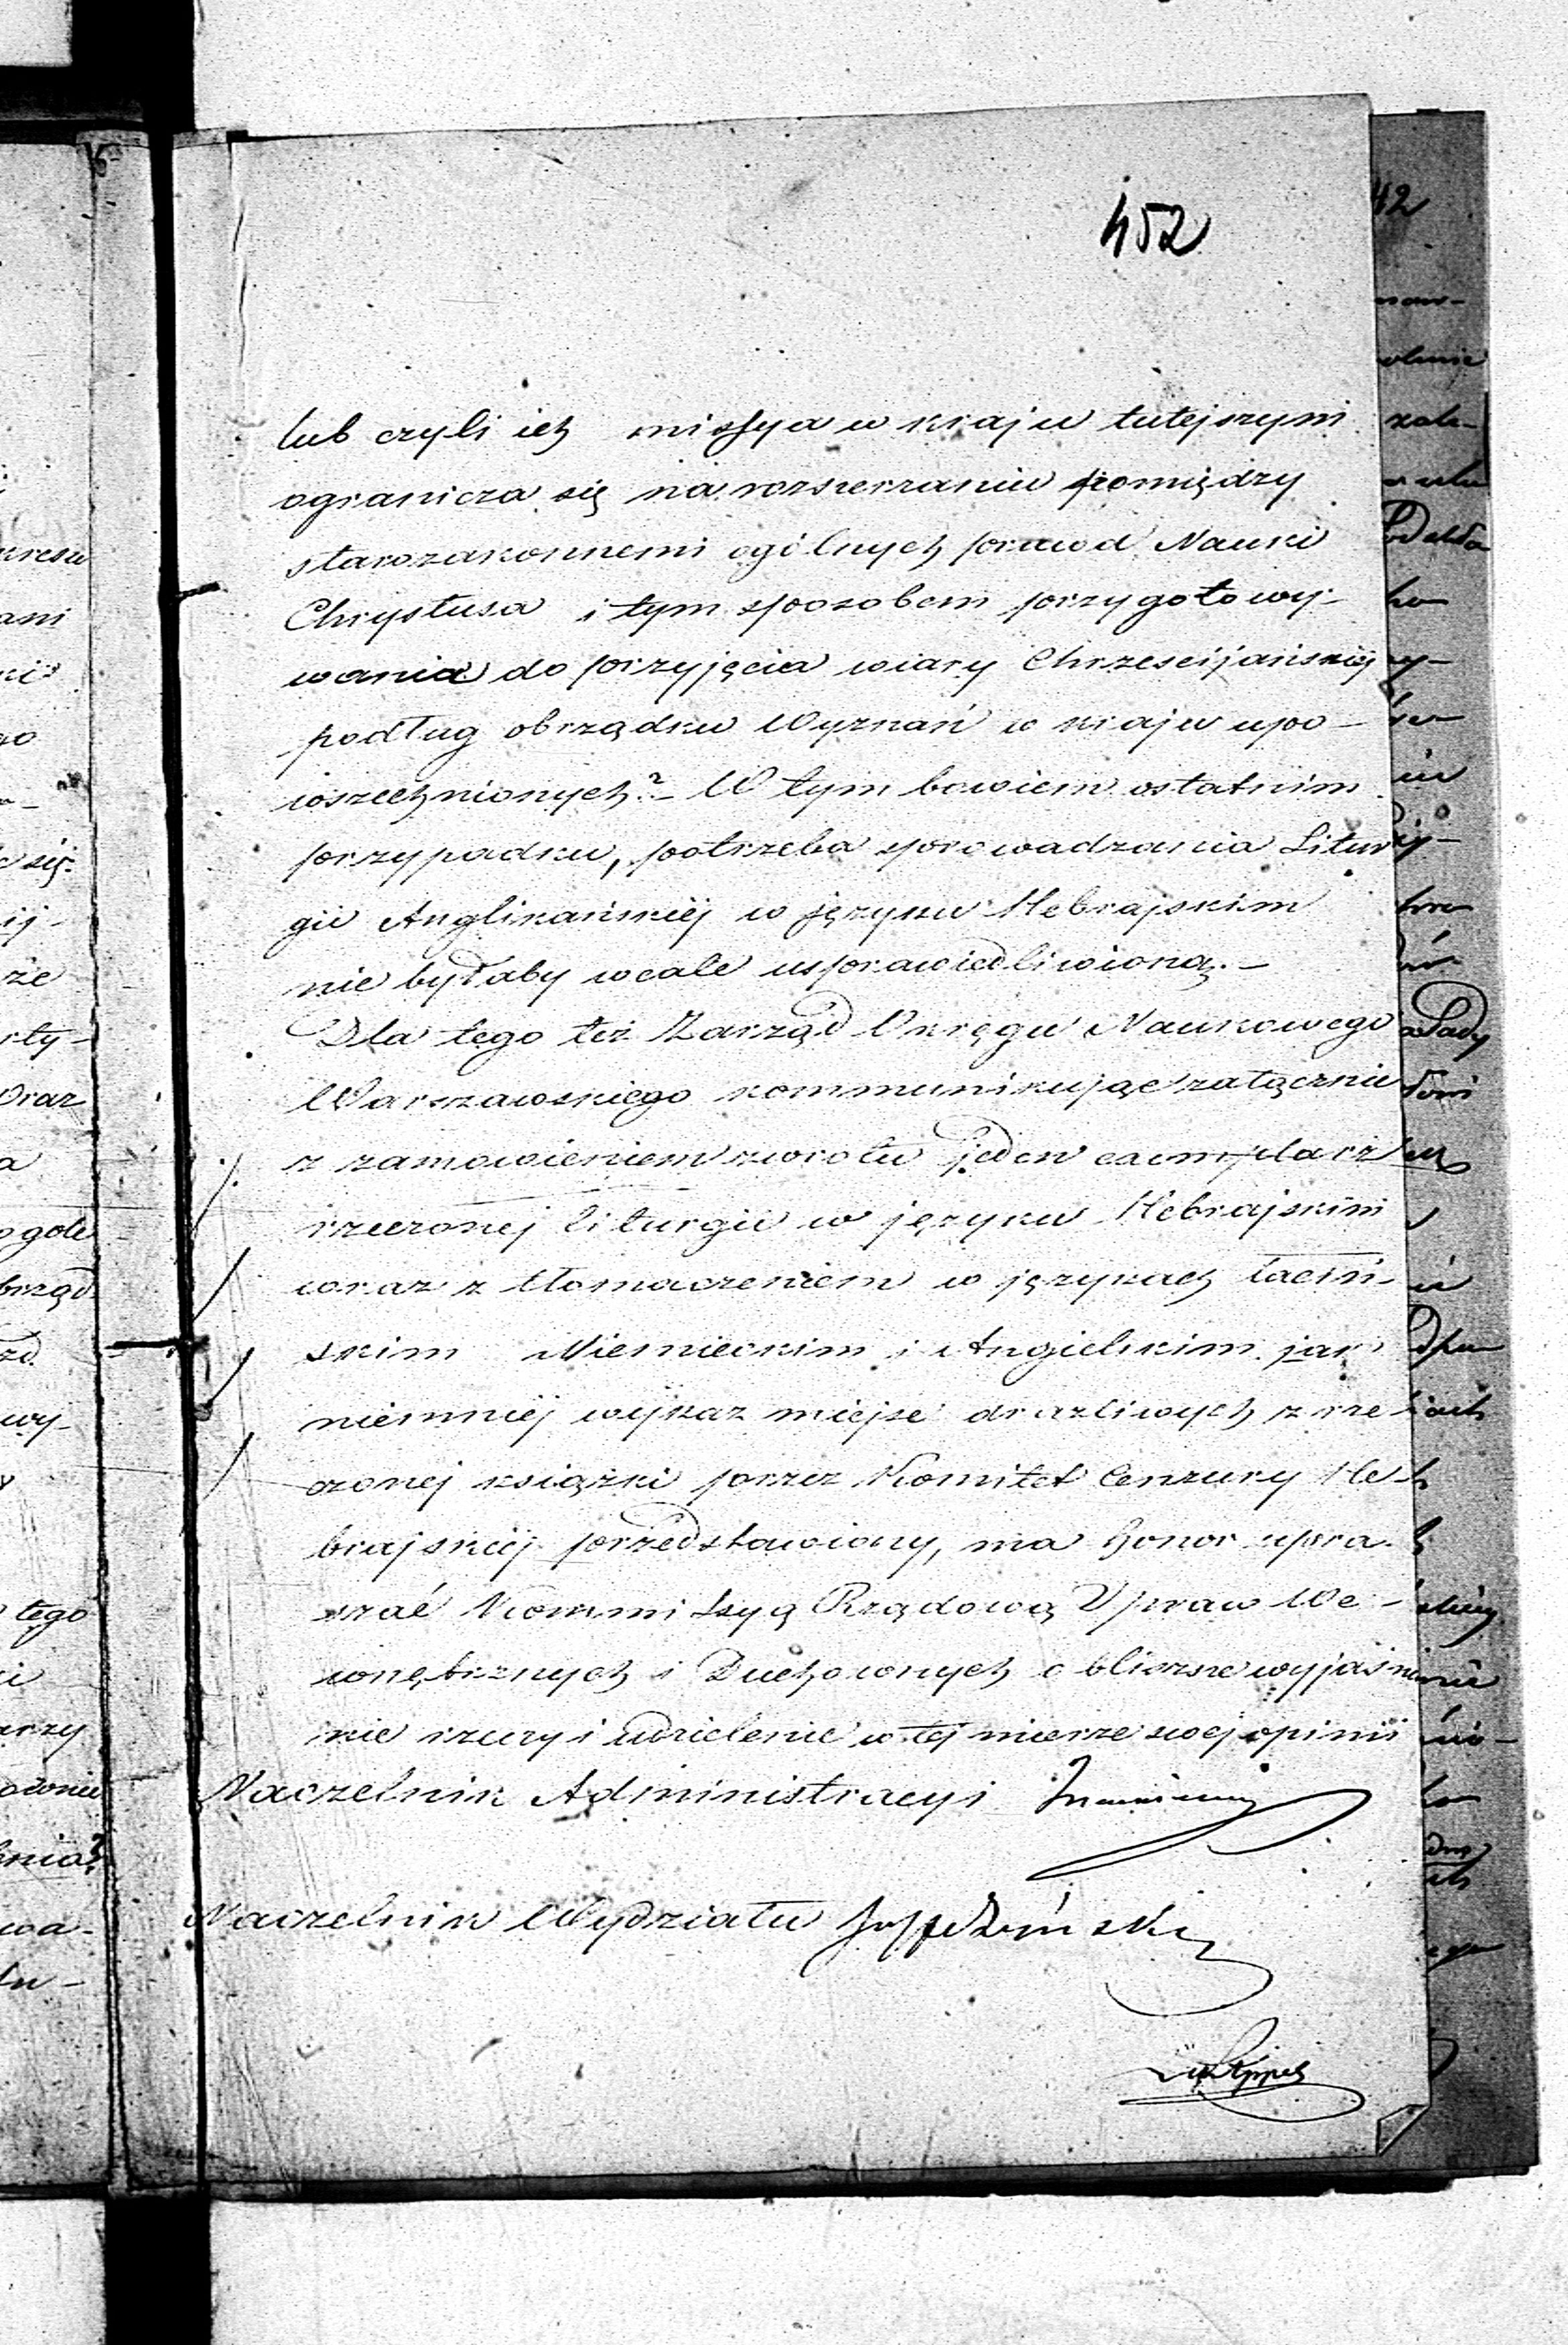 452
lub czyli ich missya w kraju tutejszym
ogranicza się na rozszerzaniu pomiędzy
starozakonnemi ogólnych prawd Nauki
Chrystusa i tym sposobem przygotowy-
wania do przyjęcia wiary Chrześcijańskiej
podług obrządku Wyznań w kraju upo-
wszechnionych? - W tym bowiem ostatnim
przypadku, potrzeba sprowadzania Litur-
gii Anglikańskiej w języku Hebrajskim
nie byłaby wcale usprawiedliwioną. -
Dla tego też Zarząd Okręgu Naukowego
Warszawskiego kommunikując załącznie
z zamówieniem zwrotu jeden exemplarz
rzeczonej liturgii w języku Hebrajskim
wraz z tłomaczeniem w językach łaciń-
skim Niemieckim i Angielskim jak
niemniej wykaz miejsc drażliwych z rze
czonej książki przez Komitet Cenzury He
brajskiej przedstawiony, ma honor upra
szać Kommissyą Rządową Spraw We-
wnętrznych i Duchownych o bliższe wyjaśnie
nie rzeczy i udzielenie w tej mierze swej opinii
Naczelnik Administracyi
Naczelnik Wydziału